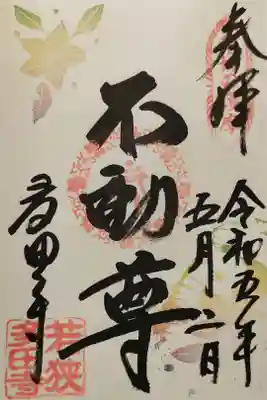 奉拝
令和五年
五月二日
不動尊
多田寺
若狭
多田寺